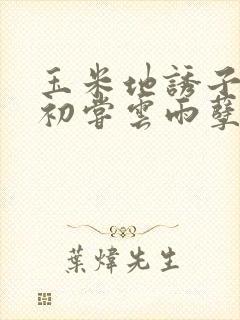 玉米地誘子
初嘗雲雨孽
葉煒先生